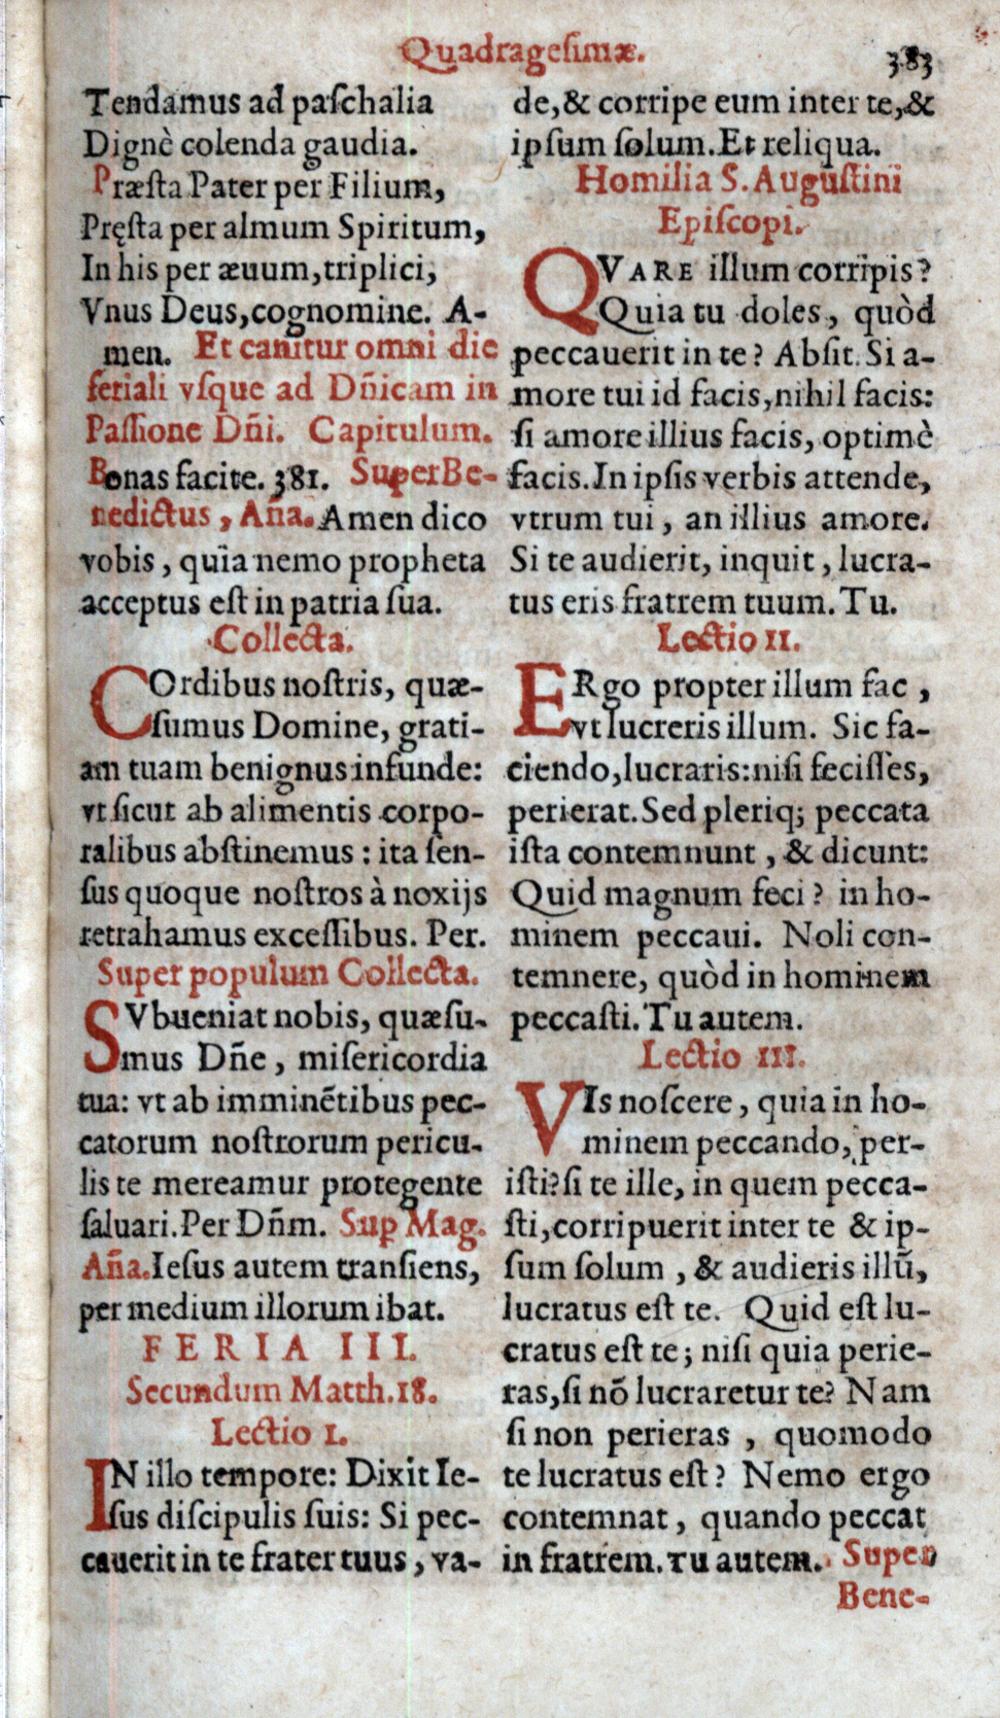 Quadrageſimæ.
383
Tendamus ad paſchalia
Dignè colenda gaudia.
Præſta Pater per Filium,
Pręſta per almum Spiritum,
In his per æuum, triplici,
Vnus Deus, cognomine. A-
men. Et canitur omni die
feriali vſque ad Dñicam in
Paſſione Dñi. Capitulum.
Bonas facite. 381. Super Be-
nedictus, Aña. Amen dico
vobis, quia nemo propheta
acceptus eſt in patria ſua.
Collecta.
COrdibus noſtris, quæ-
ſumus Domine, grati-
am tuam benignus infunde:
vt ſicut ab alimentis corpo-
ralibus abſtinemus: ita ſen-
ſus quoque noſtros à noxijs
retrahamus exceſſibus. Per.
Super populum Collecta.
SVbueniat nobis, quæſu-
mus Dñe, miſericordia
tua: vt ab imminẽtibus pec-
catorum noſtrorum pericu-
lis te mereamur protegente
ſaluari. Per Dñm. Sup Mag.
Aña. Ieſus autem tranſiens,
per medium illorum ibat.
FERIA III.
Secundum Matth. 18.
Lectio I.
IN illo tempore: Dixit Ie-
ſus diſcipulis ſuis: Si pec-
cauerit in te frater tuus, va-
de, & corripe eum inter te, &
ipſum ſolum. Et reliqua.
Homilia S. Auguſtini
Epiſcopi.
QVARE illum corripis?
Quia tu doles, quòd
peccauerit in te? Abſit. Si a-
more tui id facis, nihil facis:
ſi amore illius facis, optimè
facis. In ipſis verbis attende,
vtrum tui, an illius amore.
Si te audierit, inquit, lucra-
tus eris fratrem tuum. Tu.
Lectio II.
ERgo propter illum fac,
vt lucreris illum. Sic fa-
ciendo, lucraris: niſi feciſſes,
perierat. Sed pleriq; peccata
iſta contemnunt, & dicunt:
Quid magnum feci? in ho-
minem peccaui. Noli con-
temnere, quòd in hominem
peccaſti. Tu autem.
Lectio III.
VIs noſcere, quia in ho-
minem peccando, per-
iſti? ſi te ille, in quem pecca-
ſti, corripuerit inter te & ip-
ſum ſolum, & audieris illũ,
lucratus eſt te. Quid eſt lu-
cratus eſt te; niſi quia perie-
ras, ſi nõ lucraretur te? Nam
ſi non perieras, quomodo
te lucratus eſt? Nemo ergo
contemnat, quando peccat
in fratrem. Tu autem. Super
Bene-